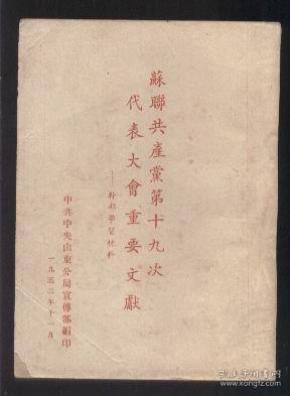 蘇聯共產黨第十九次
代表大會重要文獻
——幹部學習材料
中共中央山東分局宣傳部編印
一九五二年十一月